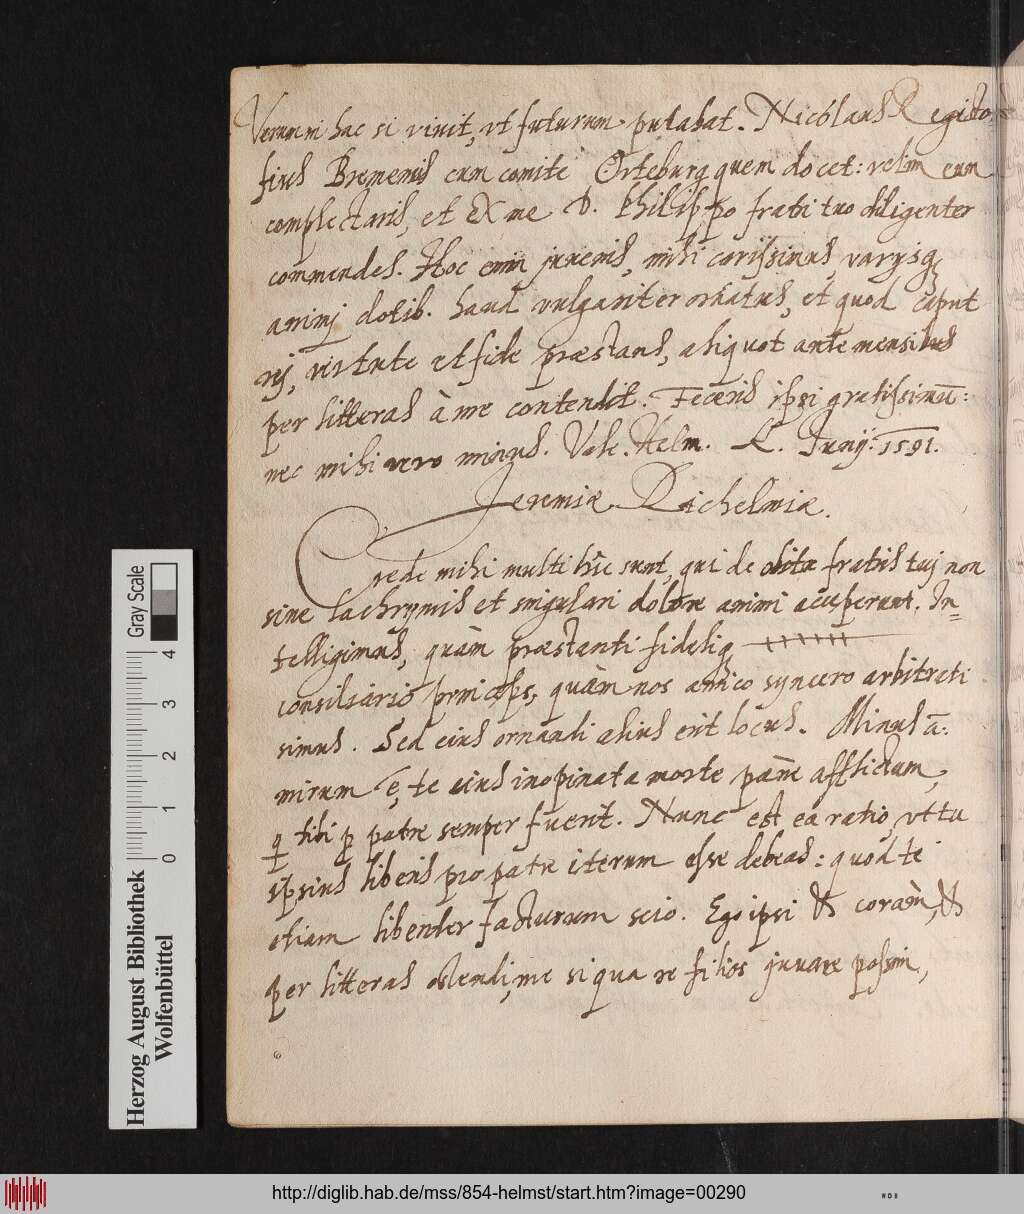 Verum ni hac si vivit, vt futurum putabat. Nicolaus Regicto
sius Bremensis cum comite Orteburg quem docet: velim eum
complectaris, et ex me D. Philippo fratri tuo diligenter
commendes. Hoc enim juvenis, mihi carissimus, varijsq
animi dotib. haud vulgariter ornatus, et quod caput
rei, virtute et fide præstans, aliquot ante mensibus
per litteras à me contendit. Feceris ipsi gratissimū:
nec mihi vero minus. Vale. Helm. Junij. 1591.
Jeremiæ Richelmiæ.
Crede mihi multi hîc sunt, qui de obitu fratris tuj non
sine lachrymis et singulari dolore animi acceperunt. In=
telligimus, quàm præstanti fideliq
consiliario princeps, quàm nos amico syncero arbitreti
simus. Sed eius ornandi alius erit locus. Minus ā:
mirum ē, te eius inopinata morte pæne afflictum,
q tibi p patre semper fuerit. Nunc est ea ratio, vt tu
ipsius liberis pro patre iterum esse debeas: quod te
etiam libenter facturum scio. Ego ipsi & coràm, &
per litteras ostendi, me si qua re filios juvare possim,
Herzog August Bibliothek
Wolfenbüttel
0 1 2 3 4
Gray Scale
http://diglib.hab.de/mss/854-helmst/start.htm?image=00290